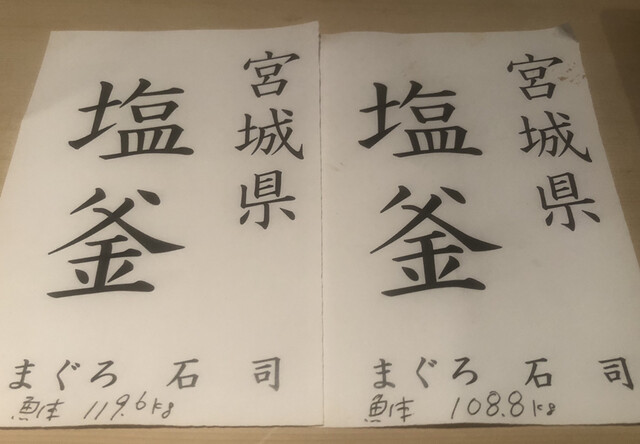 宮城県
塩釜
まぐろ 石司
魚体 119.6kg
宮城県
塩釜
まぐろ 石司
魚体 108.8kg